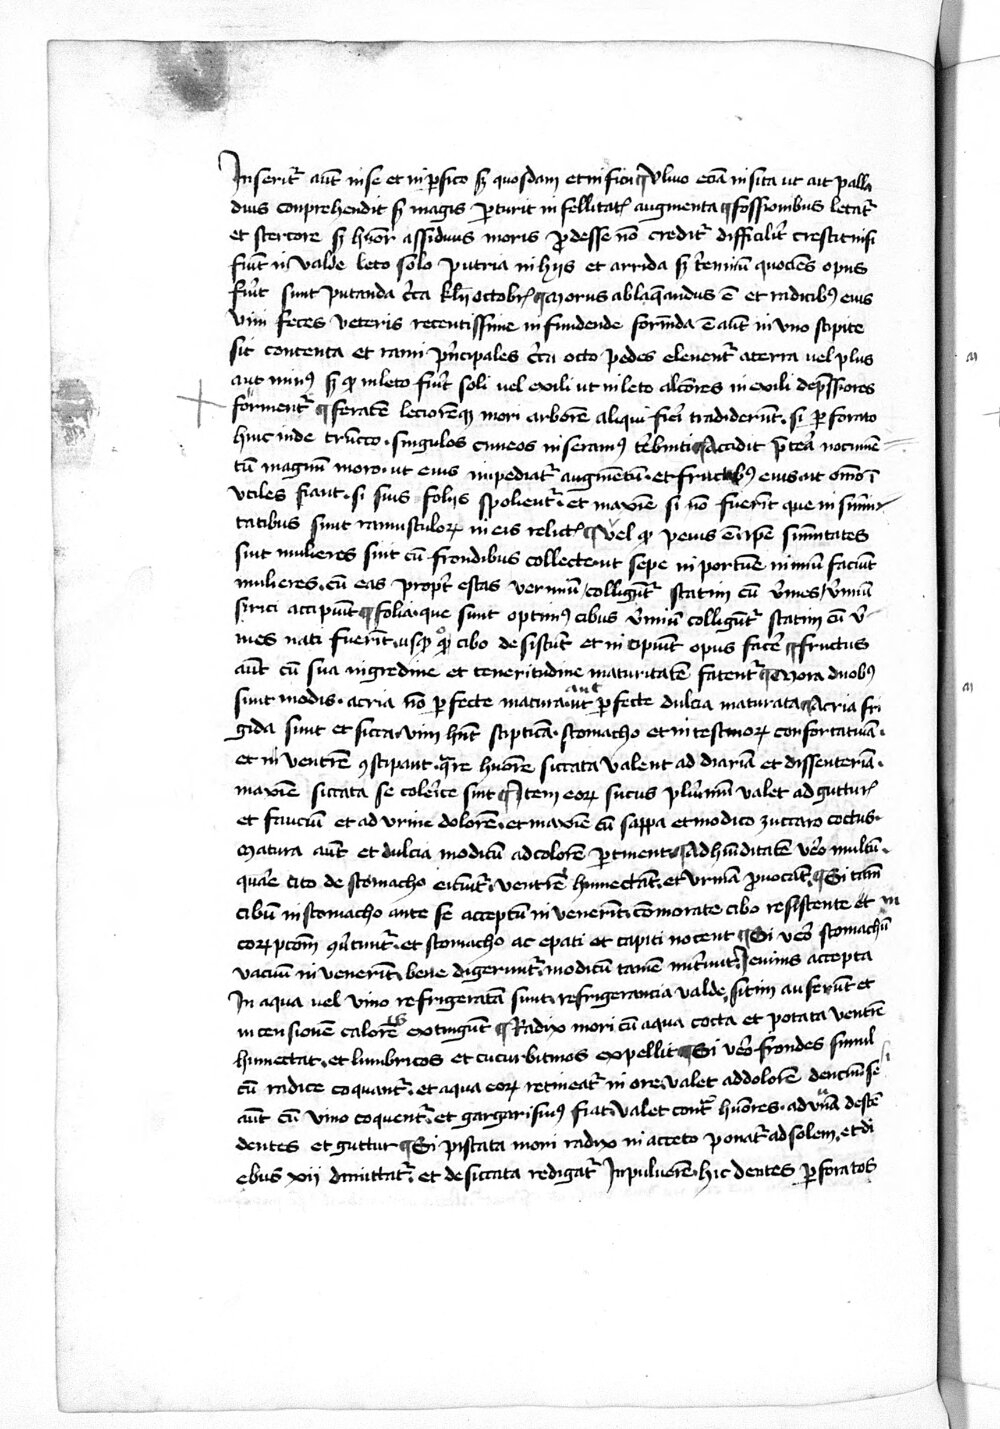 Inserit᷑ aūt in se et in ꝑsico sꝫ quosdam et in fici ¶ Vlmo eciā insita ut ait palla
dius conprehendit sꝫ magis ꝑturit infellitat᷑ augmenta ¶ fossionibus letat᷑
et stercore sꝫ huōr assiduus moris ꝓdesse nō credit᷑ difficilit᷑ crescit nisi
fiūt in valde leto solo putria in hijs et arrida sꝫ t᷑ennium quociēs opus
fu᷑it sunt putanda c᷑ca kl᷑ii octobr᷑ ¶ Morus ablaq̄andus ē et radicibꝯ eius
vini feces veteris recentissime infundende formāda ē aūt in vno stipite
sit contenta et rami pⁱncipales c᷑ca octo pedes eleuent᷑ a terra vel plus
aut minꝯ sꝫ qꝫ in leto fu᷑it soli vel exili ut in leto alciōres in exili dep̄ssiores
forment᷑ ¶ feratē leciorēqꝫ mori arborē aliqui fieri tradiderūt. si ꝑforato
hinc inde trūcco. singulos cuneos inseramꝯ t᷑ebinti ¶ Accidit p̄terea nocumē
tū magnū moro. ut eius impediat᷑ augmētū. et fructibꝯ eius. ut om̄o ī
vtiles fiant. si suis folijs spolient᷑. et maxīe si nō fuerīt que in sūmi
tatibus sunt ramusculoꝝ in eis relict᷑ ¶ Vel qꝫ peius ē. ipse sūmitates
sint mulieres sint cū frondibus collecte. ut sepe inportūe nimiū faciūt
mulieres. cū eas propt᷑ escas vermiū / colligūt᷑ statim cū v᷑mes / v᷑miū
sirici accipiūt ¶ folia. que sunt optimꝯ cibus v᷑miū colligūt᷑ statim cū v᷑
mes nati fuerīt. usqꝫ quo cibo desistūt et incipiūt opus facē ¶ fructus
aūt cū sua nigredine et teneritudine maturitatē fatent᷑ ¶ Mora duobꝯ
sunt modis. acria nō ꝑfecte matura. aut ꝑfecte dulcia maturata ¶ Acria fri
gida sunt et sicca. vim hn̄t stipticā. stomacho et intestinoꝝ confortatiuā.
et in ventrē ꝯstipant. q̄re huōre siccata valent ad diariā et dissenteriā.
maxīe siccata se colerice sint ¶ Item eoꝝ sucus plurimū valet ad guttur᷑
et fauciū et ad vrine dolorē. et maxīe cū sappa et modico zuccaro coctus.
Matura aūt et dulcia modicū ad colorē ꝑtinent ¶ Ad hūiditatē vero multū.
quare cito de stomacho exeūt᷑. ventrē humectāt. et vrinā ꝓuocāt. ¶ Si tam̄
cibū in stomacho ante se acceptū inuenerīt. cōmorate cibo resistente et in
coꝝpcōm ꝯu᷑tūt᷑. et stomacho ac epati et capiti nocent ¶ Si vero stomachū
vacuū inuenerīt. bene digerunt᷑. modicū tamē nut᷑iūt. Ieiunis accepta
In aqua vel vino refrigeratā sunt. refrigerancia valde. sitim auferūt et
incensionē calorē extingūt ¶ Radix mori cū aqua cocta et potata ventrē
humectat. et lumbricos et cucurbitinos expellit ¶ Si vero frondes simul
cū radice coquant᷑. et aqua eoꝝ retineat᷑ in ore. valet ad dolorē denciū. se
aūt cū vino coquent᷑. et gargarismꝯ fiat. valet contᵃ huōres. ad vuā descē
dentes et guttur ¶ Si pistata mori radix in acceto ponat᷑ ad solem. et di
ebus xij dimittat᷑. et desiccata redigat᷑ In puluerē. hic dentes ꝑforatos